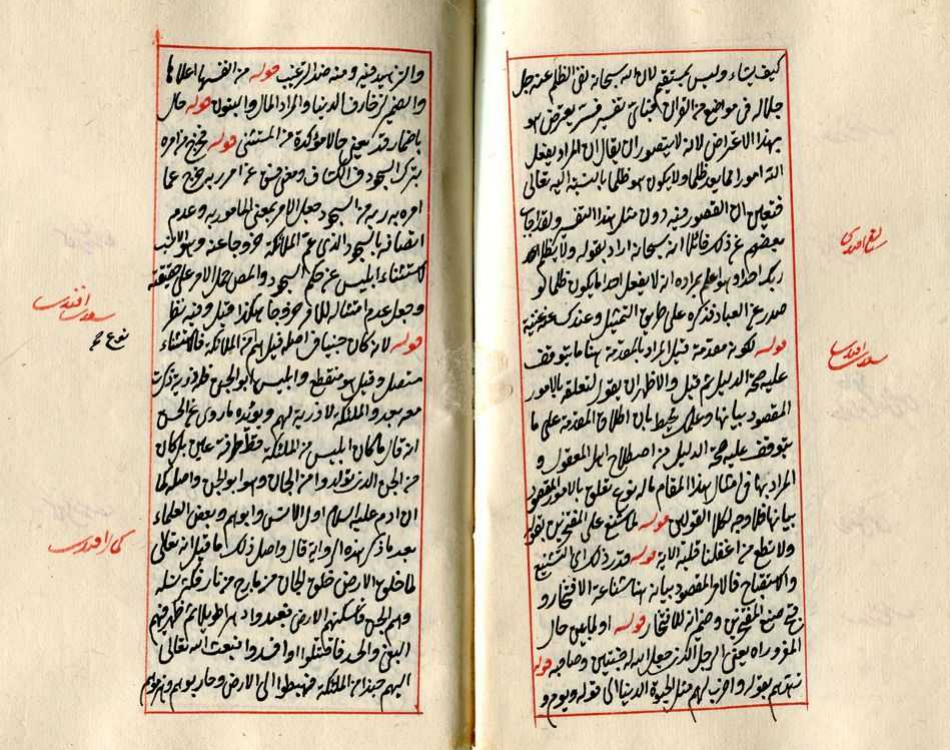 كيف يشاء وليس بمستقيم لان الله سبحانه نفى الظلم عنه جل
جلاله في مواضع من القرآن تفسير يعترض هو
بهذا الاعتراض لانه لا يتصور ان يقال ان المراد يفعل
الله امورا مما يعد ظلما ولا يكون هو ظلما بالنسبة اليه تعالى
فتعين ان القصور فيه دون مثل هذا التفسير ولقد اجاب
بعضهم عن ذلك قائلا انه سبحانه اراد بقوله ولا يظلم
ربك احدا وهو اعلم بمراده انه لا يفعل احدا ما يكون ظلما لو
صدر عن العباد فذكره على طريق التمثيل وعندك
قوله لكونه مقدمة قيل المراد بالمقدمة هنا ما يتوقف
عليه صحة الدليل ثم قيل والاظهر ان يقول لتعلقه بالامور
المقصود بيانها وعلمك يحيط بان اطلاق المقدمة على ما
يتوقف عليه صحة الدليل من اصطلاح اهل المعقول و
المراد بها في امثال هذا المقام ما له نوع تعلق بالامور المقصود
بيانها فلا وجه لكلا القولين قوله لما شنع على المفتخرين
ولا تطع من اغفلنا قلبه الآية قوله قرر ذلك اى التشنيع
والاستقباح فالامر المقصود بيانه هنا شناعة الافتخار و
قبح صنيع المفتخرين وضميره للافتخار قوله او لما بين حال
المغرور اه يعنى الرجل الذى جعل الله له جنتين وصاحبه قوله
بقوله واضرب لهم مثل الحيوة الدنيا الى قوله ويوم
سعدى افندى
والتزهيد فيه ومنه ضد الترغيب قوله من انفسها اعلاها
والضمير لزخارف الدنيا والمراد المال والبنون قوله حال
باضمار قد يعنى حالا مؤكدة من المستثنى قوله فخرج عن امره
بترك السجود في الكشاف ومعنى ففسق عن امر ربه خرج عما
امره به ربه من السجود جعل الامر بمعنى المأمور به وعدم
اتصافه بالسجود الذى عم الملائكة خروجا عنه وهو الانسب
لاستثناء ابليس عن حكم السجود والمص حمل الامر على حقيقته
وجعل عدم امتثال الامر خروجا هكذا قيل وفيه نظر
قوله لانه كان جنيا في اصله قيل هو من الملائكة فالاستثناء
متصل وقيل هو منقطع وابليس ابو الجن فله ذرية ذكرت
معه بعد والملائكة لا ذرية لهم ويؤيده ما روى عن الحسن
انه قال ما كان ابليس من الملائكة قط طرفة عين بل كان
من الجن الذين تولدوا من الجان وهو ابو الجن واصله كما
ان آدم عليه السلام اول الانس وابوهم وبعض العلماء
بعد ما ذكر هذه الرواية قال واصل ذلك ما قيل انه تعالى
لما خلق الارض خلق الجان من مارج من نار فكثر نسله
وهم الجن فاسكنهم الارض فعبدوا دهرا طويلا ثم ظهر فيهم
البغى والحسد فاقتتلوا وافسدوا فبعث الله تعالى
اليهم جندا من الملائكة فهبطوا الى الارض وحاربوهم وهزموهم
سعدى افندى